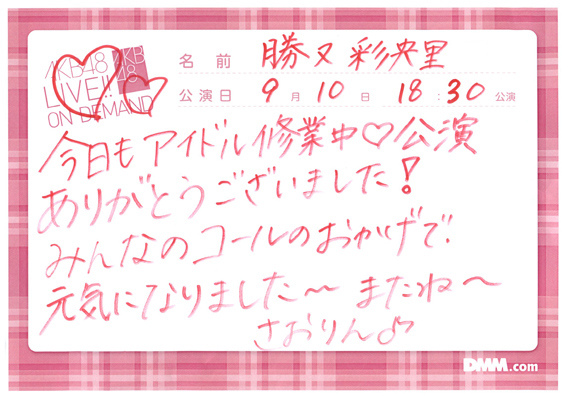 AKB48
LIVE!!
ON DEMAND
AKB
48
名前 勝又 彩央里
公演日 9月10日 18:30公演
今日もアイドル修業中♡公演
ありがとうございました!
みんなのコールのおかげで、
元気になりました〜 またね〜
さおりん♪
DMM.com